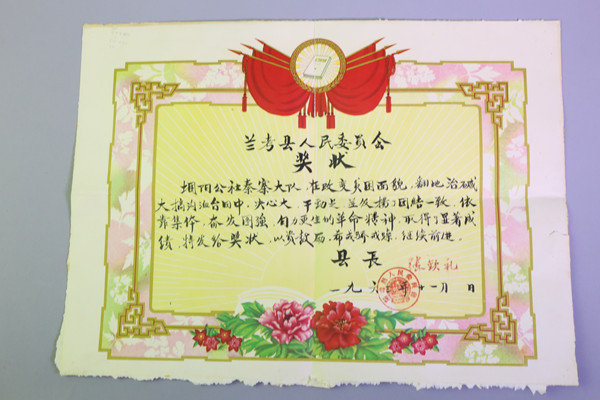 兰考县人民委员会
奖状
堌阳公社秦寨大队，在改变贫困面貌，翻地治碱
大搞沟洫台田中，决心大，干劲足，并发扬了团结一致，依
靠集体，奋发图强，自力更生的革命精神，取得了显著成
绩，特发给奖状，以资鼓励，希戒骄戒躁，继续前进。
县长 张钦礼
一九六 年十一月 日